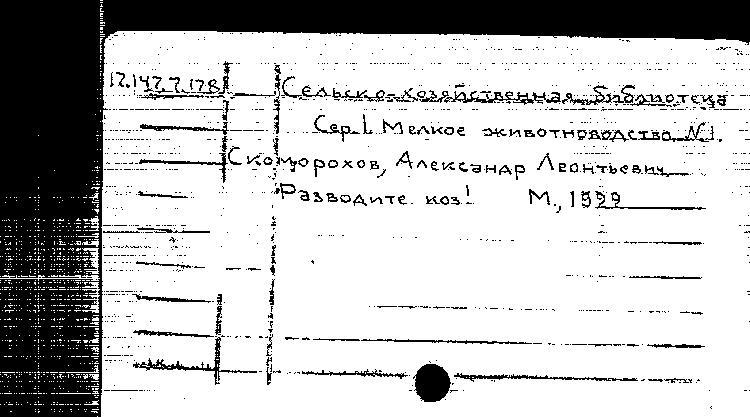 17.147.7.178
Сельско-хозяйственная библиотека
Сер.I. Мелкое животноводство. N.1.
Скоморохов, Александр Леонтьевич
Разводите коз! М.,